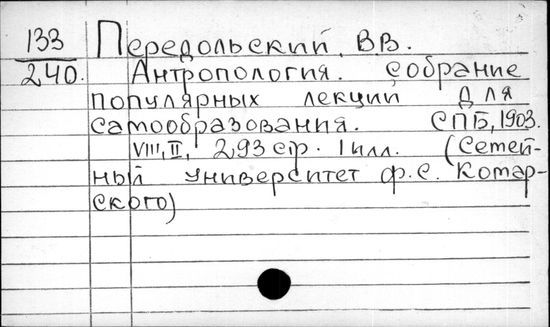 133 Передольский, В.В.
240. Антропология. собрание
популярных лекций для
самообразования. СПБ, 1903.
VIII, II, 293 стр. 1 илл. (Семей-
ный университет Ф.С. Комар-
ского)